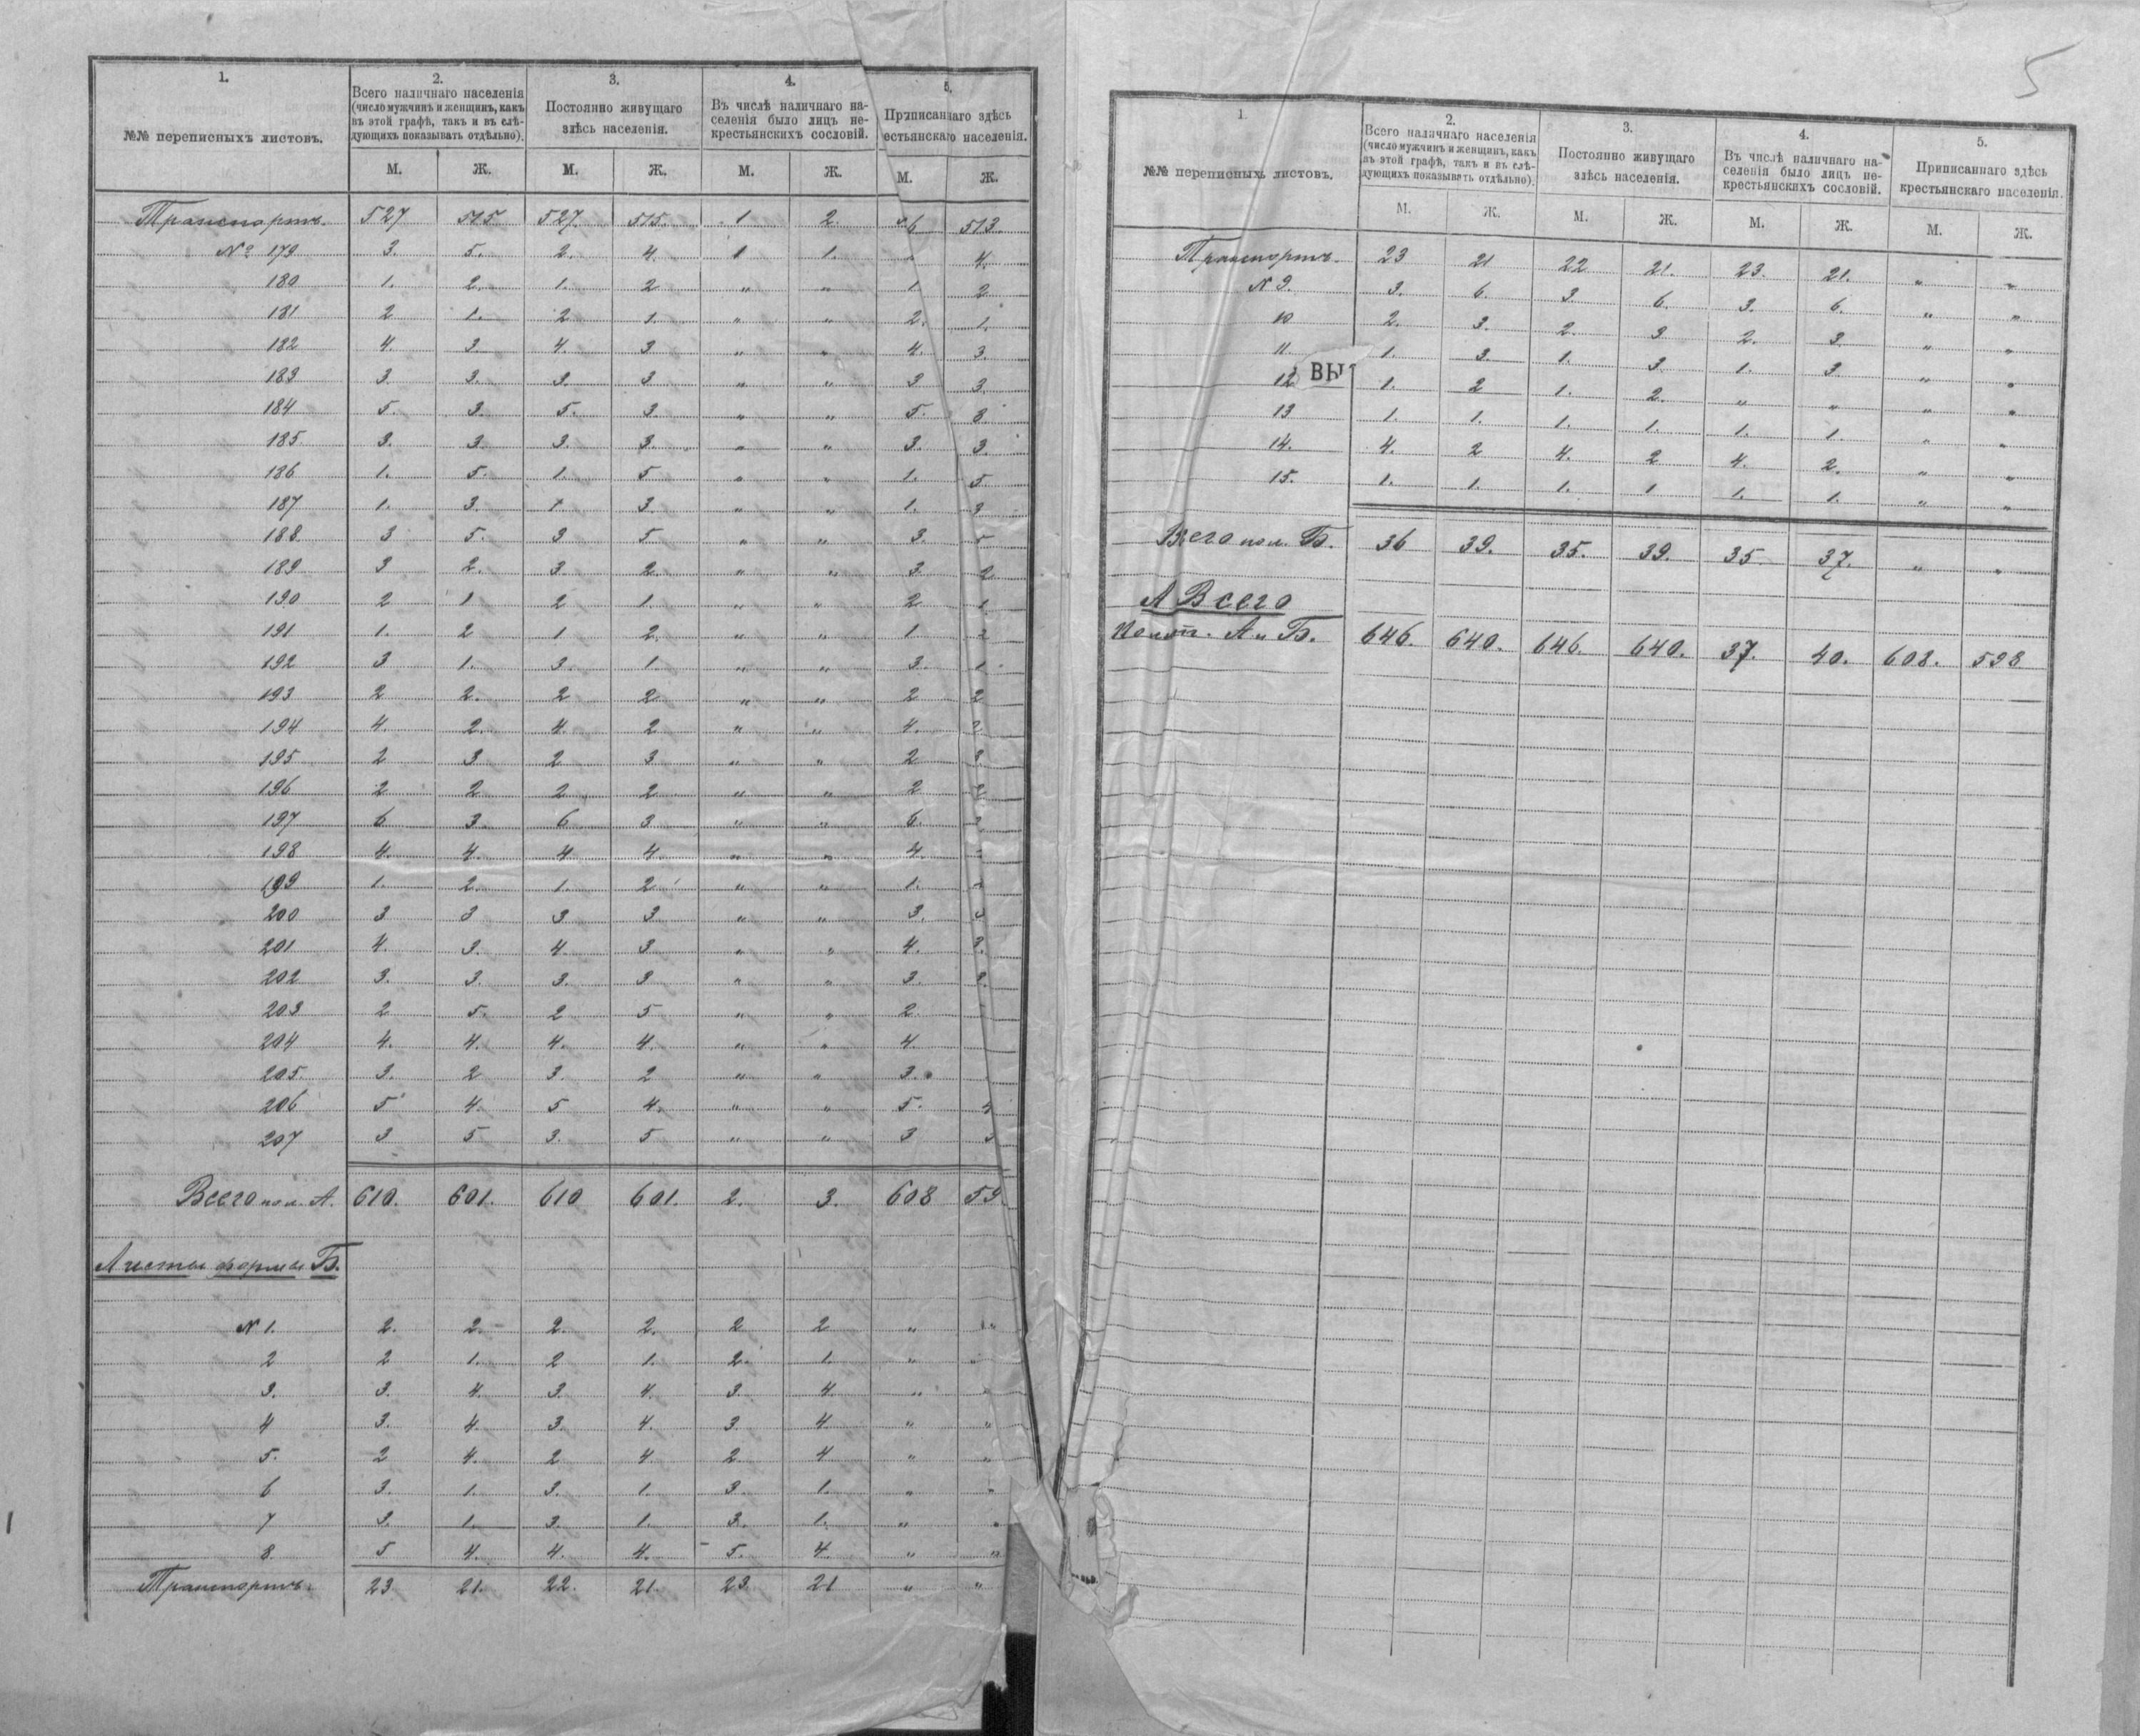 1. 2. 3. 4. 5.
№№ переписныхъ листовъ.
Всего наличнаго населенія
(число мужчинъ и женщинъ, какъ
въ этой графѣ, такъ и въ слѣ-
дующихъ показывать отдѣльно).
Постоянно живущаго
здѣсь населенія.
Въ числѣ наличнаго на-
селенія было лицъ не-
крестьянскихъ сословій.
Приписаннаго здѣсь
естьянскаго населенія.
М. Ж. М. Ж. М. Ж. М. Ж.
Транспортъ. 527 515 527. 515. 1 2. 6 513.
№ 179 3. 5. 2. 4. 1 1. 4.
180 1. 2. 1. 2 " " 1. 2
181 2 1. 2 1. " " 2. 1.
182 4. 3. 4. 3 " " 4. 3.
183 3. 3. 3. 3 " " 3 3.
184 5. 3. 5. 3. " " 5. 3
185 3. 3. 3. 3. " " 3. 3.
186 1. 5. 1. 5 " " 1. 5.
187 1. 3. 1 3. " " 1. 3
188 3 5. 3 5 " " 3. 5
189 3 2. 3. 2. " " 3. 2
190 2 1 2 1. " " 2 1
191 1. 2 1 2. " " 1 2
192 3 1. 3. 1 " " 3. 1.
193 2 2. 2 2 " " 2 2
194 4. 2. 4. 2 " " 4. 2
195 2 3 2 3 " " 2 3
196 2 2 2 2 " " 2 2
197 6 3. 6 3 " " 6.
198 4. 4. 4 4. " " 4.
199 1. 2. 1. 2 " " 1.
200 3 3 3 3 " " 3. 3
201 4. 3. 4. 3 " " 4. 3.
202 3. 3. 3. 3 " " 3. 3.
203 2 5. 2 5 " " 2
204 4. 4. 4. 4. " " 4.
205. 3. 2 3. 2 " " 3.
206 5 4. 5 4. " " 5.
207 3 5 3. 5 " " 3
Всего пол. А. 610. 601. 610 601. 2. 3. 608 59
Листы формы Б.
N 1. 2. 2. 2. 2. 2 2 " "
2 2 1. 2 1. 2. 1. " "
3. 3. 4. 3. 4. 3. 4. "
4 3. 4. 3. 4. 3. 4 " "
5. 2 4. 2 4 2 4 " "
6 3. 1. 3. 1. 3. 1. " "
7 3. 1. 3. 1. 3. 1. " "
8. 5 4. 4. 4. 5. 4. " "
Транспортъ. 23. 21. 22. 21. 23. 21 " "
5
1. 2. 3. 4. 5.
№№ переписныхъ листовъ.
Всего наличнаго населенія
(число мужчинъ и женщинъ, какъ
въ этой графѣ, такъ и въ слѣ-
дующихъ показывать отдѣльно).
Постоянно живущаго
здѣсь населенія.
Въ числѣ наличнаго на-
селенія было лицъ не-
крестьянскихъ сословій.
Приписаннаго здѣсь
крестьянскаго населенія.
М. Ж. М. Ж. М. Ж. М. Ж.
Транспортъ. 23 21 22 21. 23. 21. " "
N 9. 3. 6. 3 6. 3. 6. " "
10 2. 3. 2. 3 2. 3. " "
11. 1. 3. 1. 3 1. 3 " "
12 ВЫ 1. 2 1. 2. " " " "
13 1. 1. 1. 1. 1. 1. " "
14. 4. 2 4. 2 4. 2. " "
15. 1. 1. 1. 1 1. 1. " "
Всего пол. Б. 36 39. 35. 39. 35. 37. " "
А Всего
по лит. А и Б. 646. 640. 646. 640. 37. 40. 608. 598